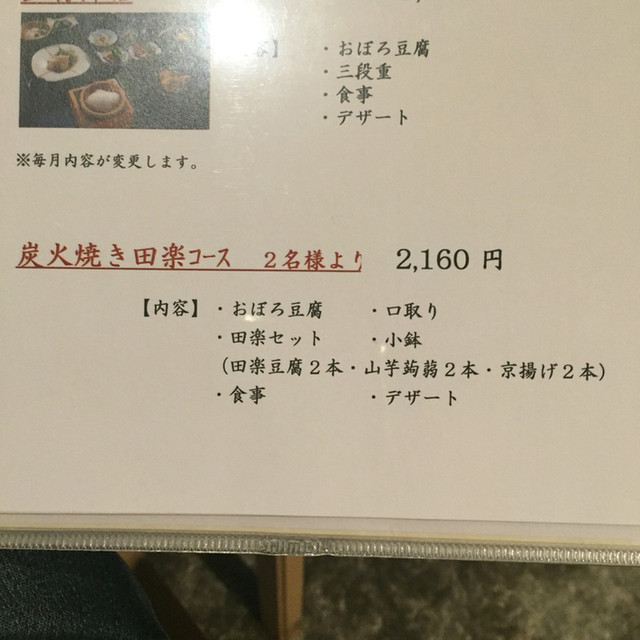 ・おぼろ豆腐
・三段重
・食事
・デザート
※毎月内容が変更します。
炭火焼き田楽コース ２名様より 2,160 円
【内容】・おぼろ豆腐 ・口取り
・田楽セット ・小鉢
（田楽豆腐２本・山芋蒟蒻２本・京揚げ２本）
・食事 ・デザート